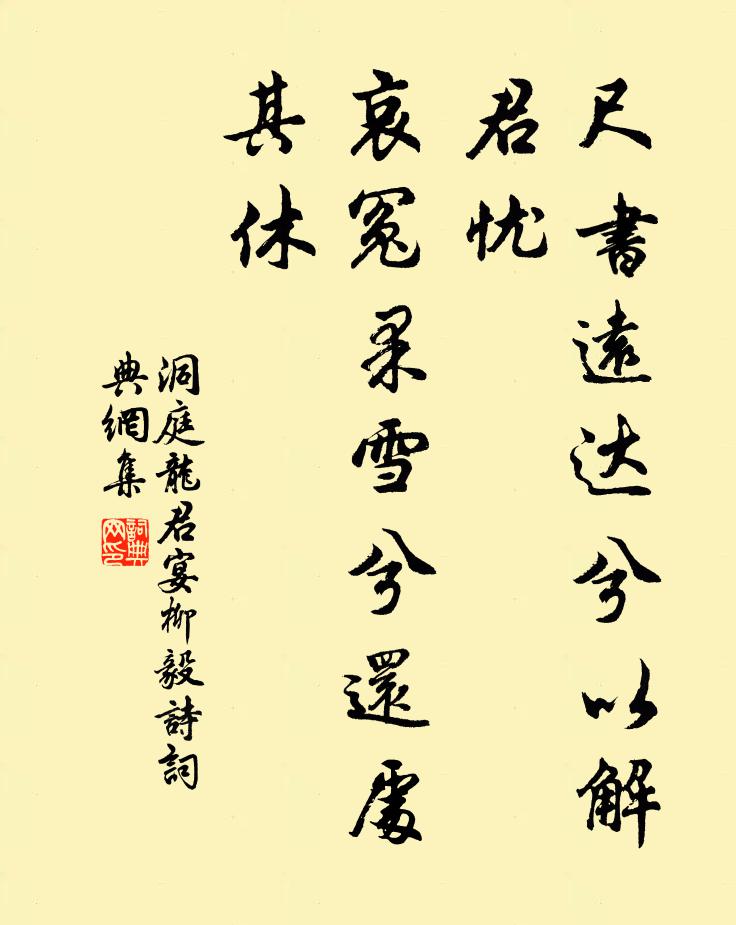 尺書遠达兮以解
君忧
哀冤果雪兮還處
其休
洞庭龍君宴柳毅詩詞
典網集
詞典
网印